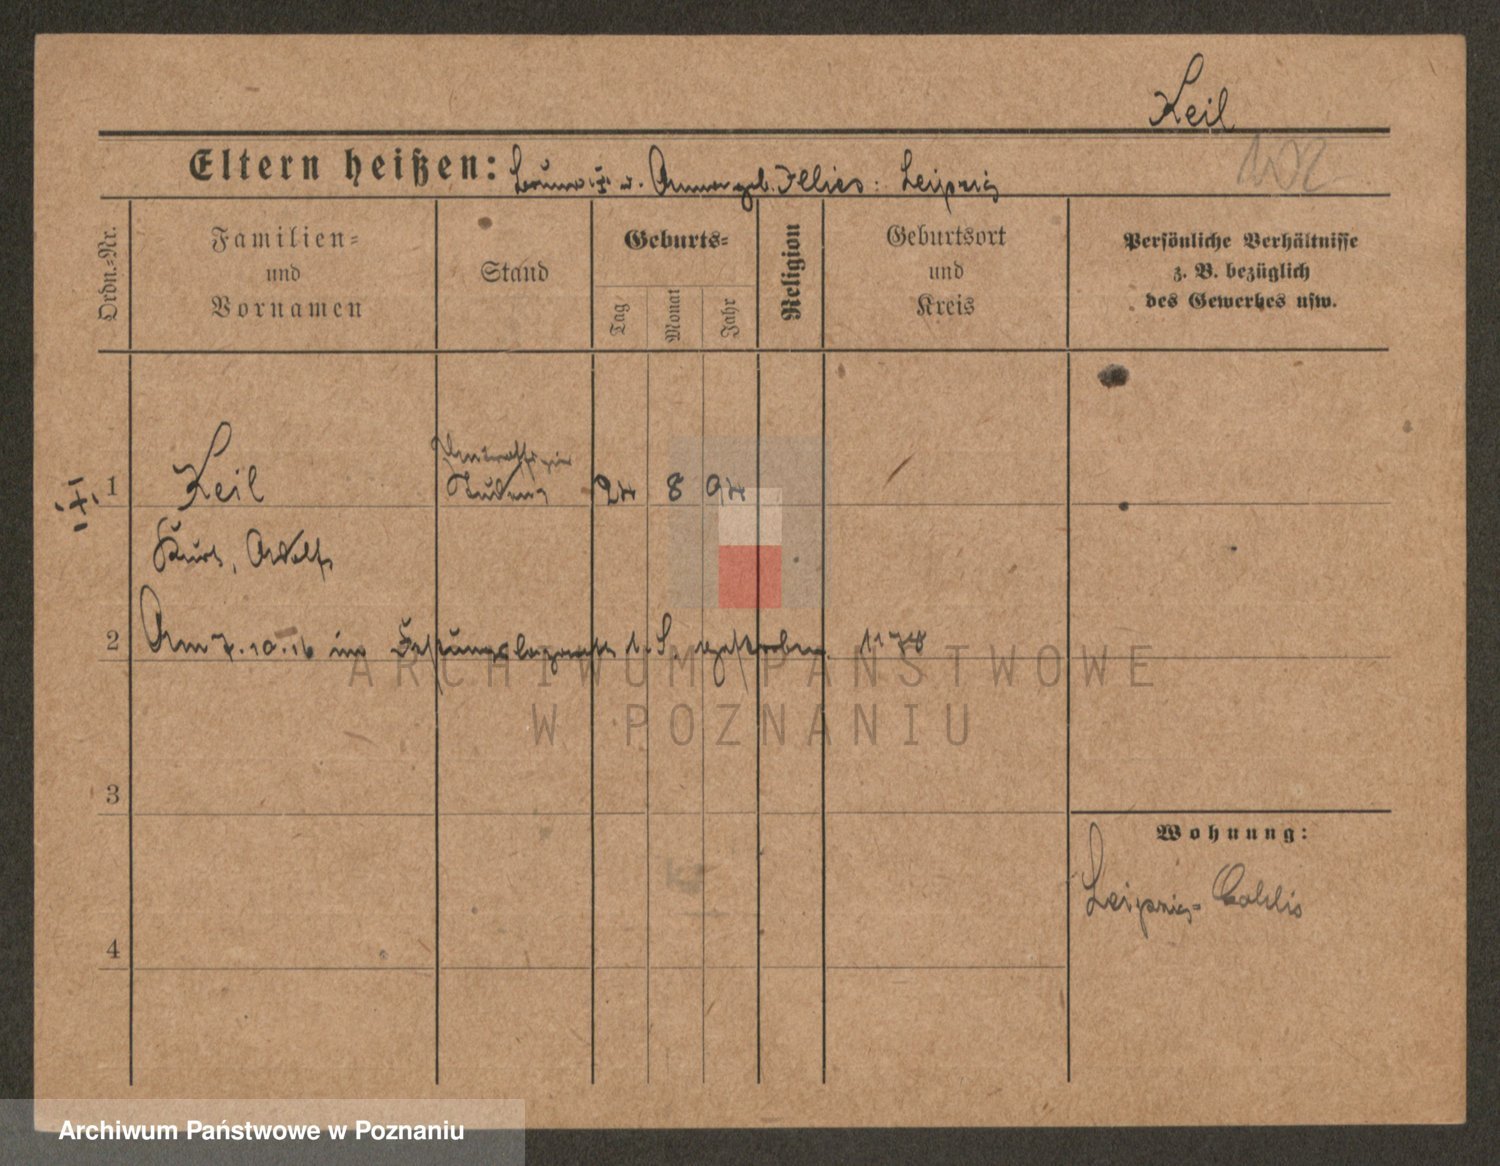 Keil
Eltern heißen: u. Anna geb. Illies: Leipzig
102
Ordn.-Nr.
Familien- und Vornamen
Stand
Geburts-
Tag
Monat
Jahr
Religion
Geburtsort und Kreis
Persönliche Verhältnisse z. B. bezüglich des Gewerbes usw.
1
Keil
24 8 94
Kurt, Adolf
2
Am 7.10.16 im Festungslazarett 1. S. gestorben. 1178
ARCHIWUM PAŃSTWOWE
W POZNANIU
3
Wohnung:
Leipzig- Gohlis
4
Archiwum Państwowe w Poznaniu